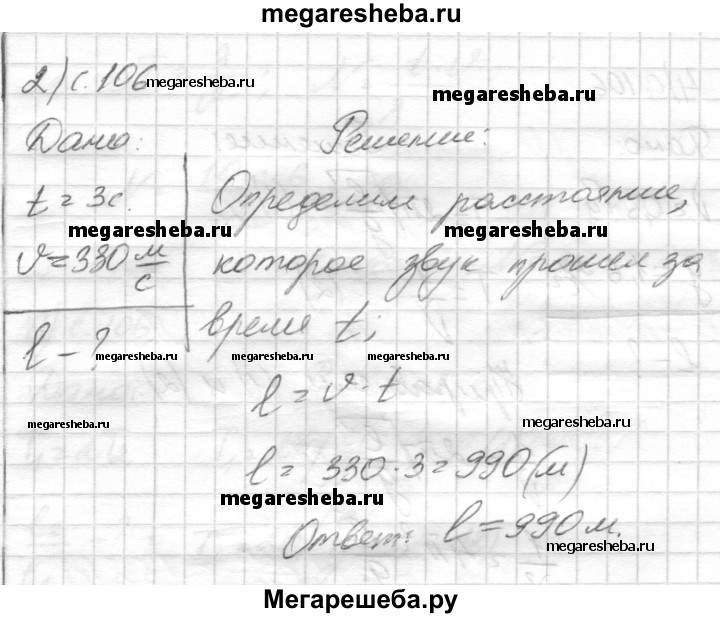 megaresheba.ru
2) с. 106 megaresheba.ru
megaresheba.ru
Дано: Решение:
megaresheba.ru
t = 3с. Определим расстояние,
megaresheba.ru megaresheba.ru
v = 330 м/с которое звук прошел за
время t;
l - ?
megaresheba.ru megaresheba.ru megaresheba.ru megaresheba.ru
l = v · t
megaresheba.ru megaresheba.ru megaresheba.ru
l = 330 · 3 = 990 (м)
megaresheba.ru
Ответ: l = 990 м.
megaresheba.ru
Мегарешеба.ру